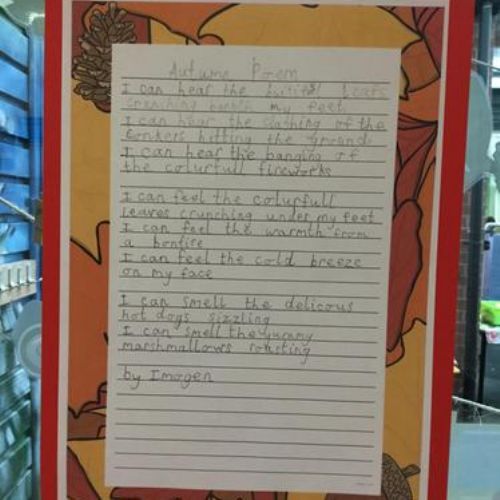 Autumn Poem
I can hear the leafs
crunching my feet
I can hear the of the
conkers hitting the ground
I can hear the banging of
the colurfull fireworks
I can feel the colurfull
leaves crunching under my feet
I can feel the warmth from
a bonfire
I can feel the cold breeze
on my face
I can smell the delicous
hot dogs sizzling
I can smell the yummy
marshmallows roasting
by Imogen